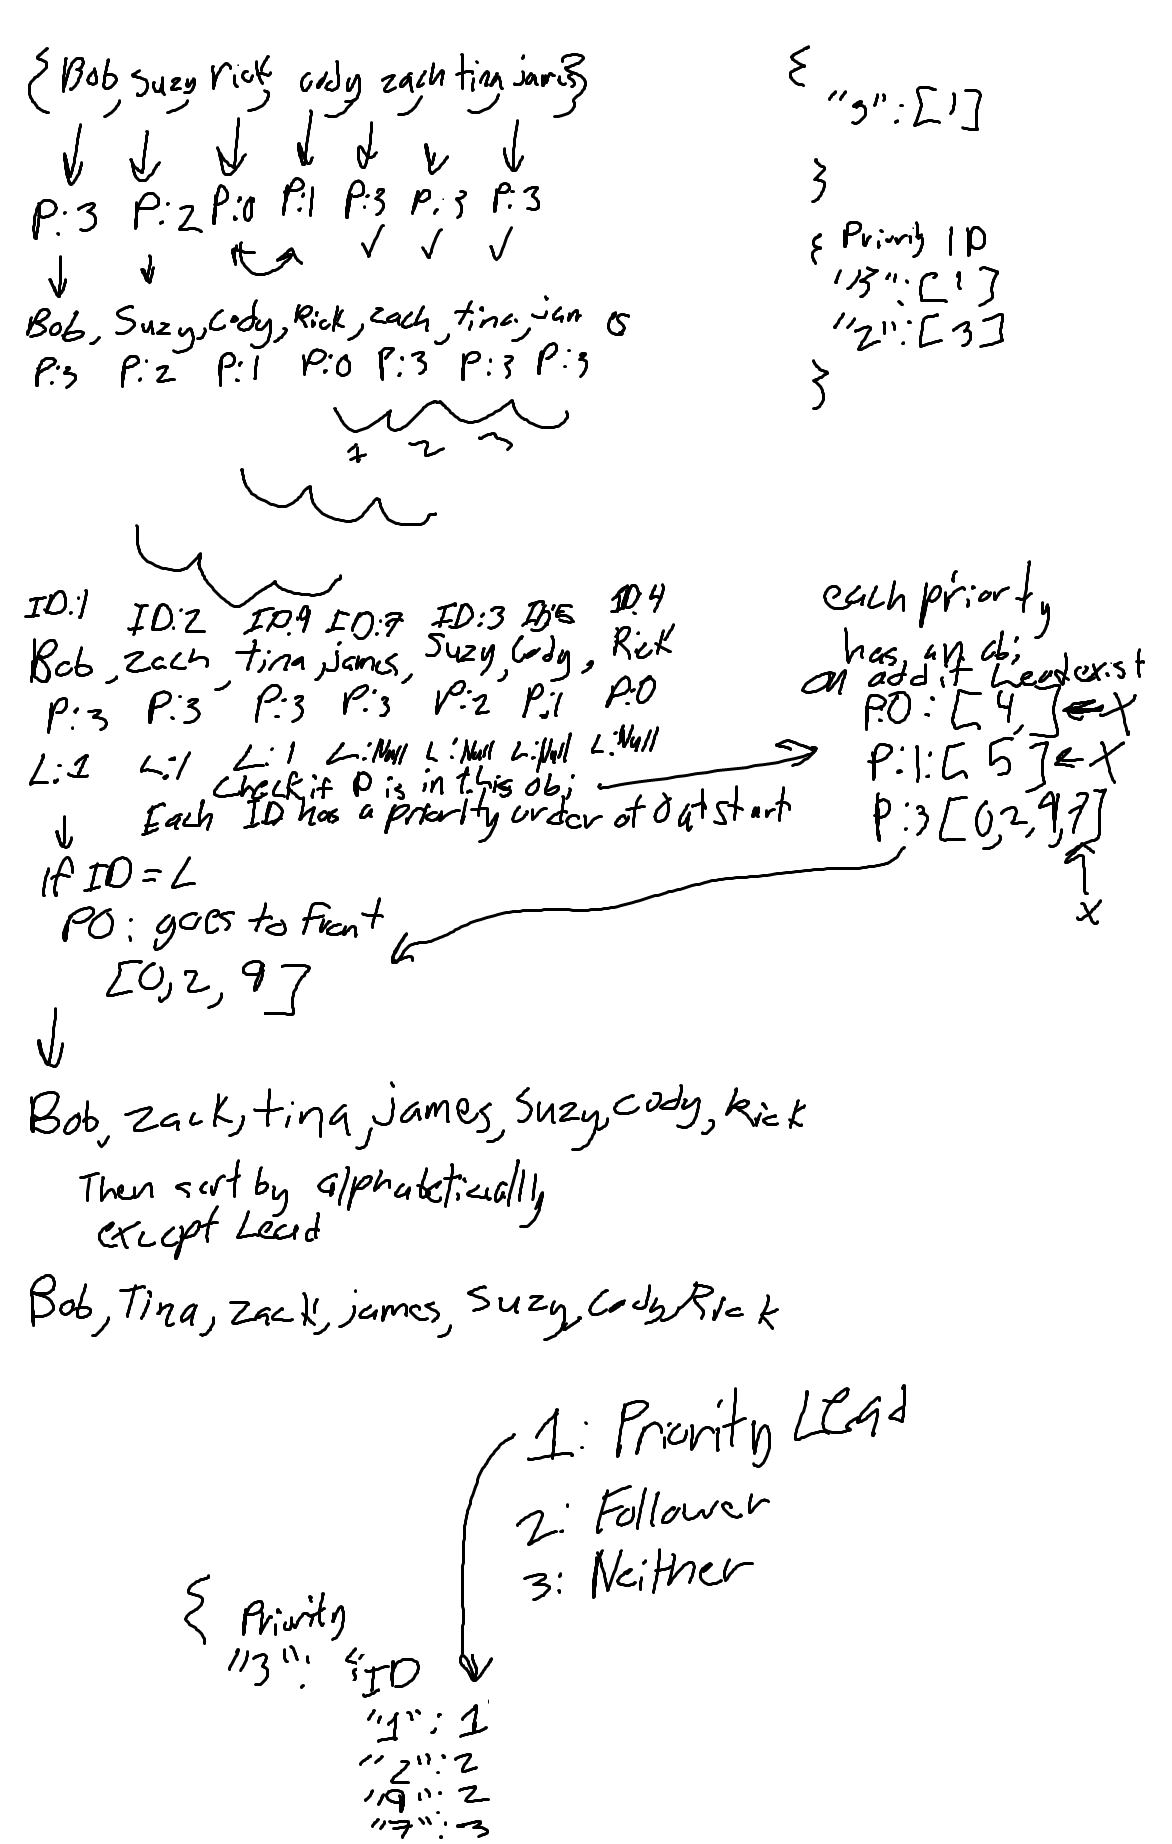 {Bob, Suzy, rick, cody, zach, tina, james}
P:3 P:2 P:0 P:1 P:3 P:3 P:3
Bob, Suzy, Cody, Rick, zach, tina, james
P:3 P:2 P:1 P:0 P:3 P:3 P:3
1 2 3
{
"3":[1]
}
{ Priority ID
"3":[1]
"2":[3]
}
ID:1 ID:2 ID:9 ID:7 ID:3 ID:5 ID:4
Bob, zach, tina, james, Suzy, Cody, Rick
P:3 P:3 P:3 P:3 P:2 P:1 P:0
L:1 L:1 L:1 L:Null L:Null L:Null L:Null
Check if P is in this obj
Each ID has a priority order of 0 at start
each priority
has an obj
on add if Lead exist
P:0 : [4,] ← X
P:1:[5] ← X
P:3[0,2,9,7]
X
if ID = L
PO: goes to front
[0,2,9]
Bob, zack, tina, james, Suzy, Cody, Rick
Then sort by alphabetically
except Lead
Bob, Tina, zack, james, Suzy, Cody, Rick
1: Priority Lead
2: Follower
3: Neither
{ Priority
"3": {ID
"1": 1
"2": 2
"9": 2
"7": 3